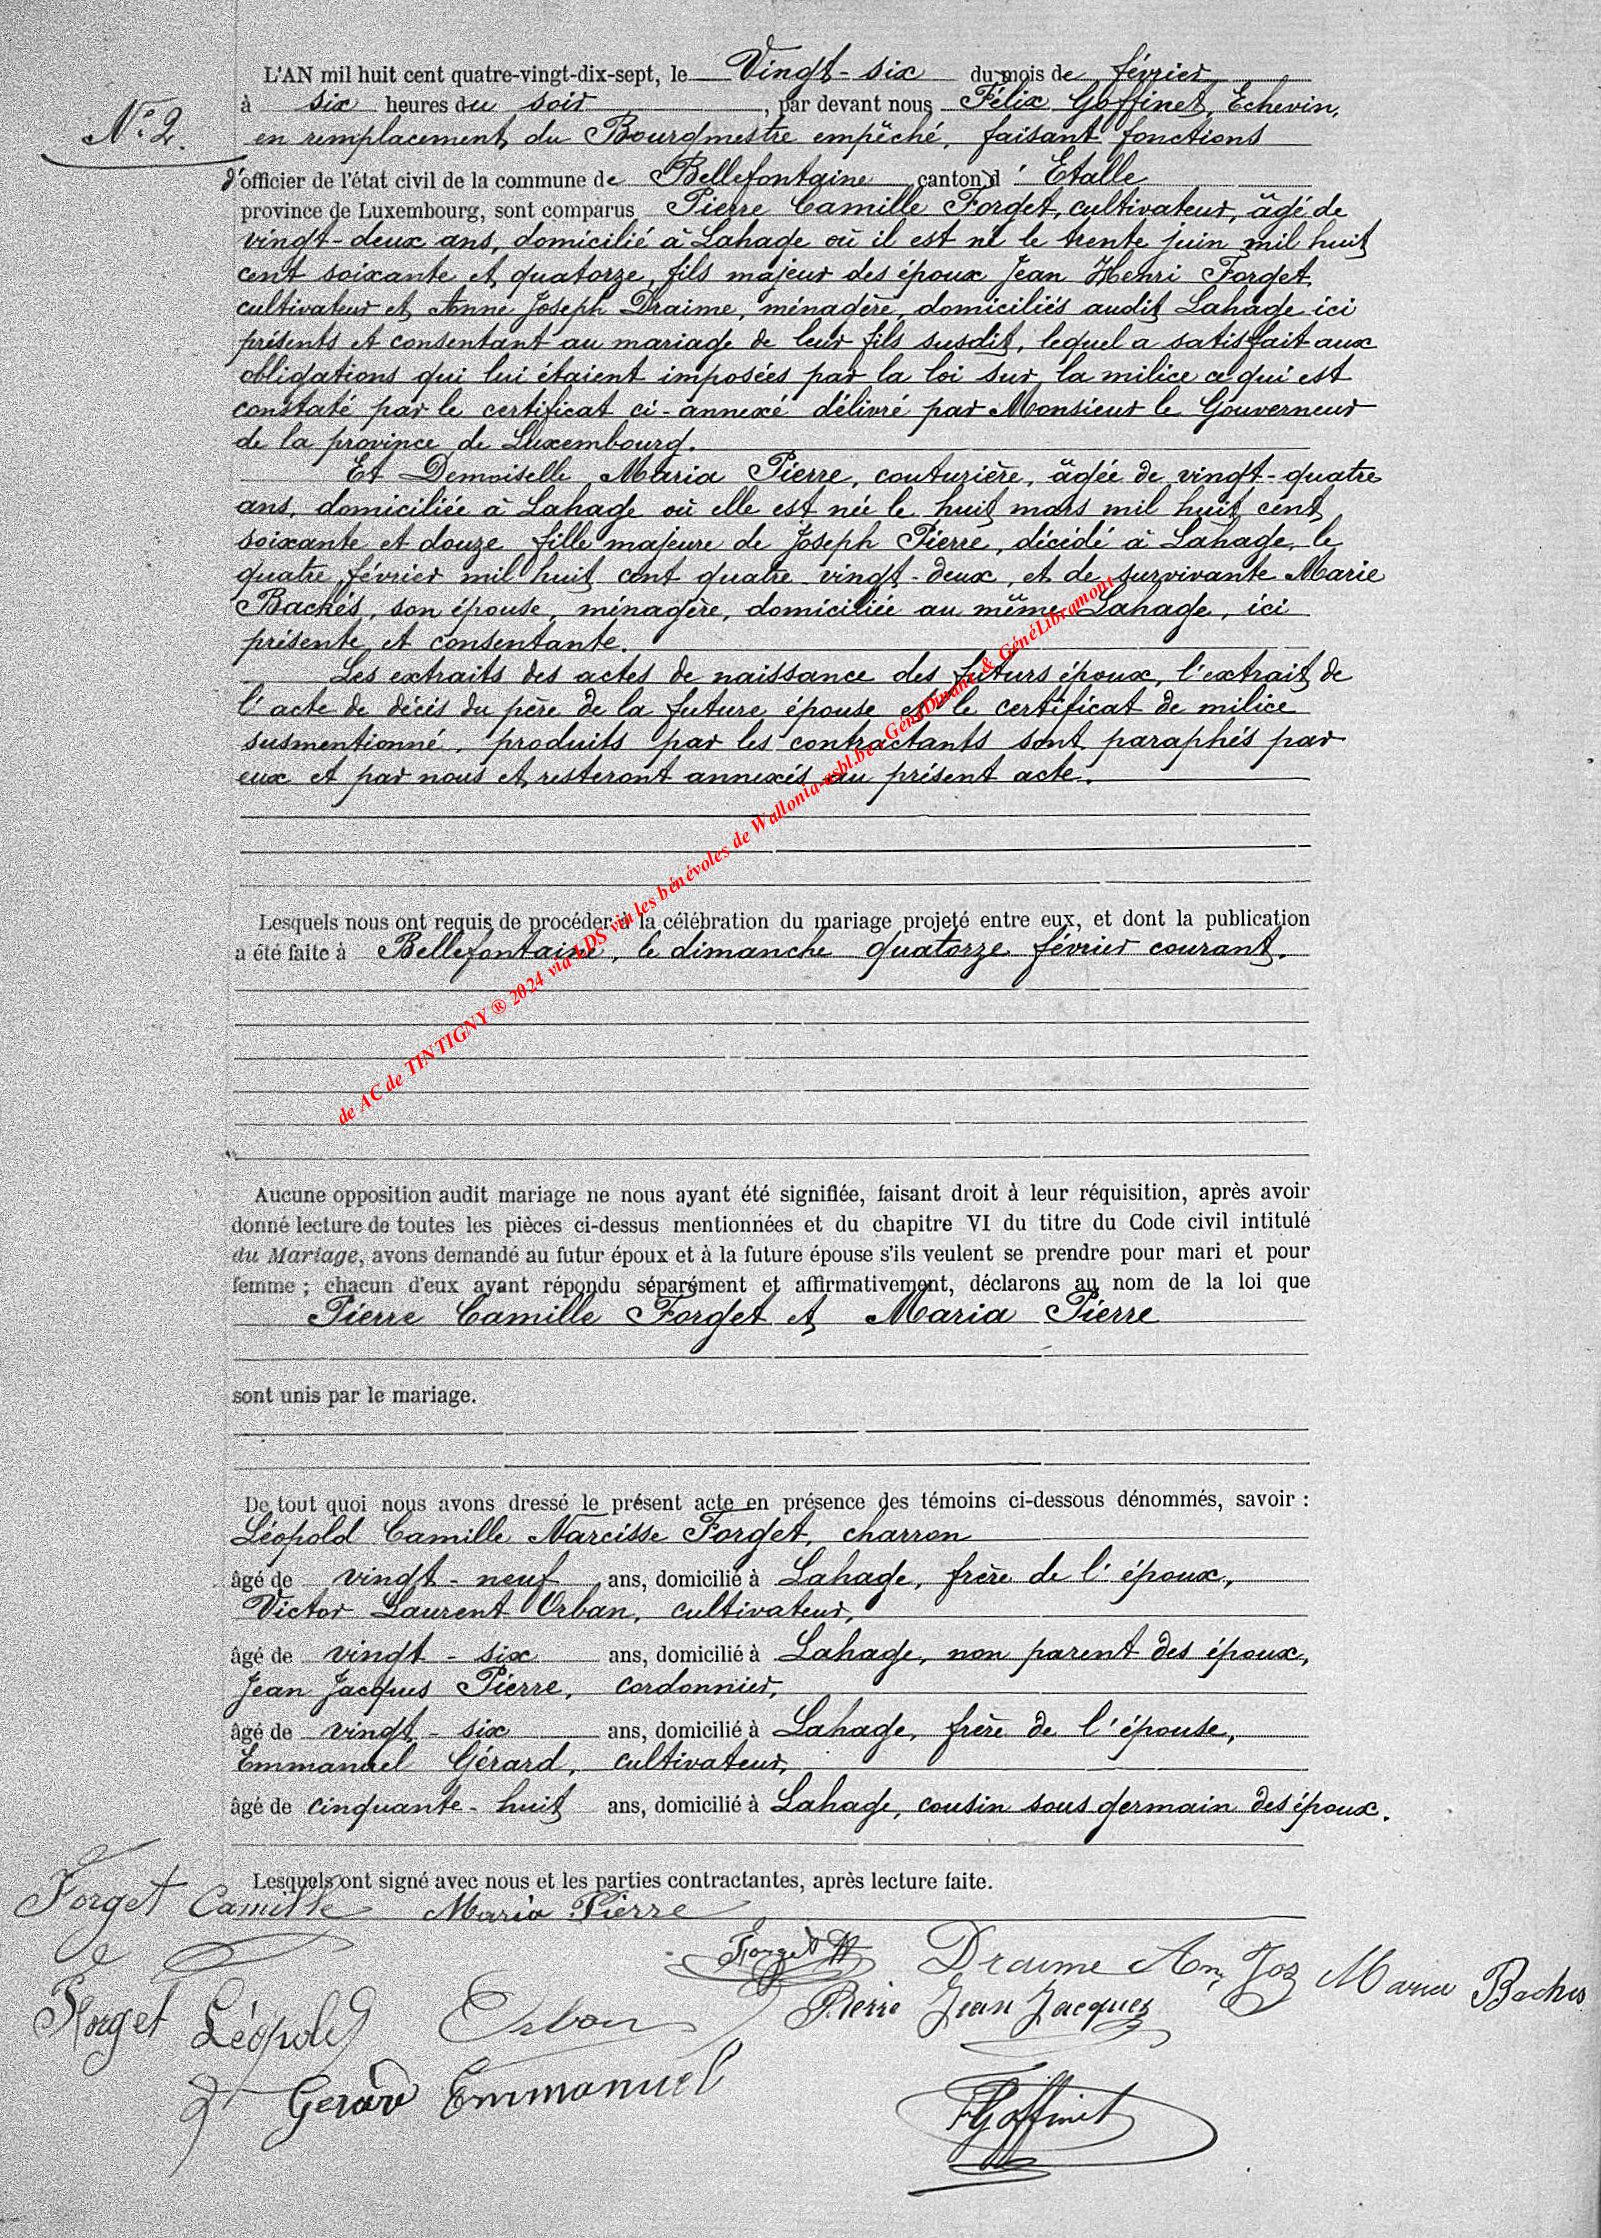 L'AN mil huit cent quatre-vingt-dix-sept, le Vingt-six du mois de février
à six heures du soir, par devant nous Félix Goffinet, Echevin,
N° 2. en remplacement du Bourgmestre empêché, faisant fonctions
d'officier de l'état civil de la commune de Bellefontaine canton d'Etalle
province de Luxembourg, sont comparus Pierre Camille Forget, cultivateur, âgé de
vingt-deux ans, domicilié à Lahage où il est né le trente juin mil huit
cent soixante et quatorze, fils majeur des époux Jean Henri Forget
cultivateur et Anne Joseph Draime, ménagère, domiciliés audit Lahage ici
présents et consentant au mariage de leur fils susdit, lequel a satisfait aux
obligations qui lui étaient imposées par la loi sur la milice ce qui est
constaté par le certificat ci-annexé délivré par Monsieur le Gouverneur
de la province de Luxembourg.
Et Demoiselle Maria Pierre, couturière, âgée de vingt-quatre
ans, domiciliée à Lahage où elle est née le huit mars mil huit cent
soixante et douze fille majeure de Joseph Pierre, décédé à Lahage, le
quatre février mil huit cent quatre-vingt-deux, et de survivante Marie
Backés, son épouse, ménagère, domiciliée au même Lahage, ici
présente et consentante.
Les extraits des actes de naissance des futurs époux, l'extrait de
l'acte de décès du père de la future épouse et le certificat de milice
susmentionné, produits par les contractants sont paraphés par
eux et par nous et resteront annexés au présent acte.
de AC de TINTIGNY ® 2024 via LDS via les bénévoles de Wallonia-asbl.be, GénéDinant & GénéLibramont
Lesquels nous ont requis de procéder à la célébration du mariage projeté entre eux, et dont la publication
a été faite à Bellefontaine, le dimanche quatorze février courant.
Aucune opposition audit mariage ne nous ayant été signifiée, faisant droit à leur réquisition, après avoir
donné lecture de toutes les pièces ci-dessus mentionnées et du chapitre VI du titre du Code civil intitulé
du Mariage, avons demandé au futur époux et à la future épouse s'ils veulent se prendre pour mari et pour
femme ; chacun d'eux ayant répondu séparément et affirmativement, déclarons au nom de la loi que
Pierre Camille Forget et Maria Pierre
sont unis par le mariage.
De tout quoi nous avons dressé le présent acte en présence des témoins ci-dessous dénommés, savoir :
Léopold Camille Narcisse Forget, charron
âgé de vingt-neuf ans, domicilié à Lahage, frère de l'époux,
Victor Laurent Orban, cultivateur,
âgé de vingt-six ans, domicilié à Lahage, non parent des époux,
Jean Jacques Pierre, cordonnier,
âgé de vingt-six ans, domicilié à Lahage, frère de l'épouse,
Emmanuel Gérard, cultivateur,
âgé de cinquante-huit ans, domicilié à Lahage, cousin sous germain des époux.
Lesquels ont signé avec nous et les parties contractantes, après lecture faite.
Forget Camille Maria Pierre
Forget H Draime An Jos Maria Backes
Forget Léopold Orban Pierre Jean Jacques
Gérard Emmanuel F Goffinet